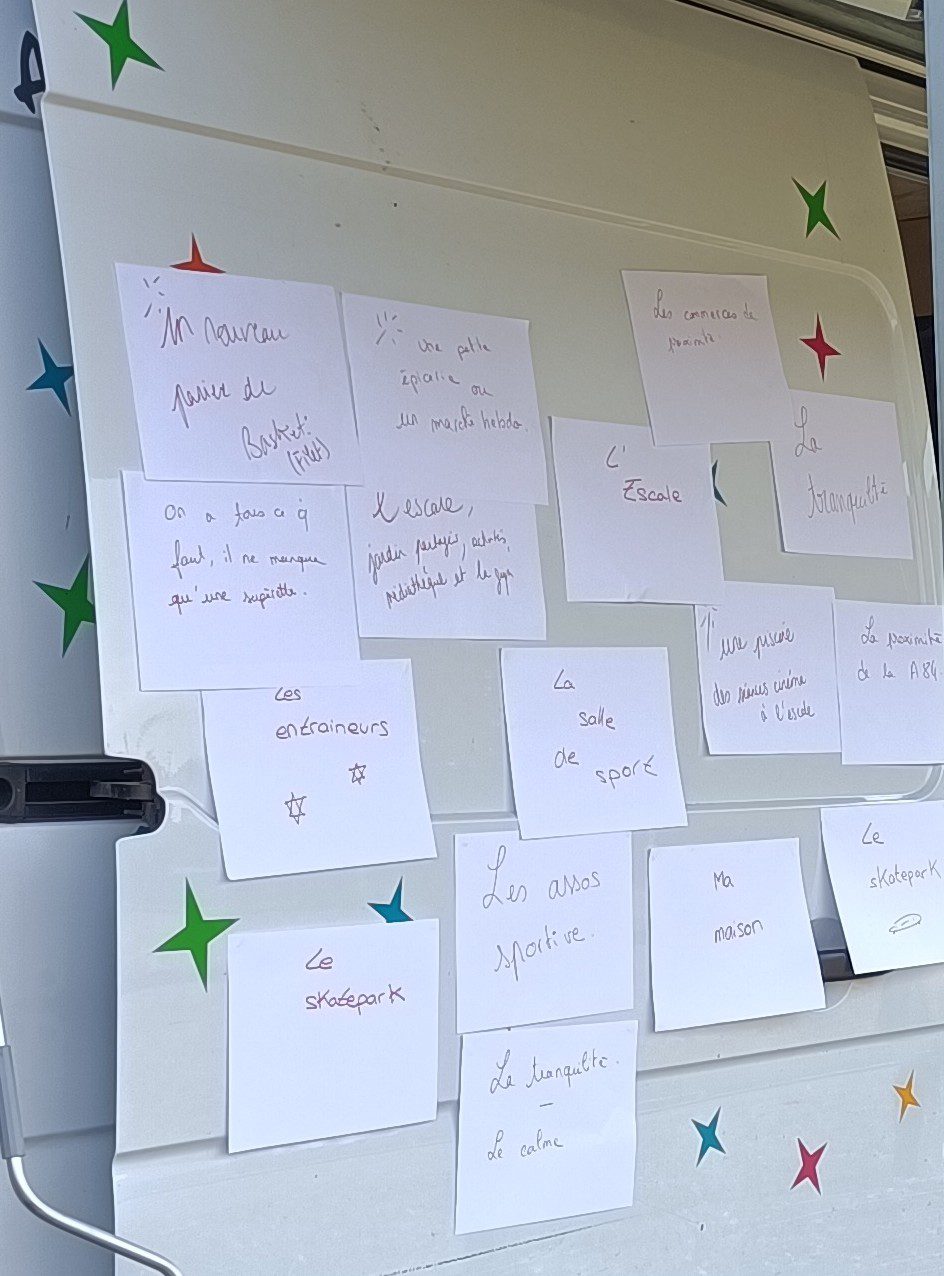 Un nouveau
panier de
Basket!
(Filet)
une petite
épicerie ou
un marché hebdo.
Les commerces de
proximité.
La
tranquilté
L'
Escale
On a tous ce q
faut, il ne manque
qu'une supérette.
L'escale,
jardin partagés,
médiathèque et le gym
une piscine
des séances cinéma
à l'escale
La proximité
de la A84.
Les
entraineurs
La
salle
de
sport
Le
skatepark
Les assos
sportive.
Ma
maison
Le
skatepark
La tranquilité.
–
Le calme